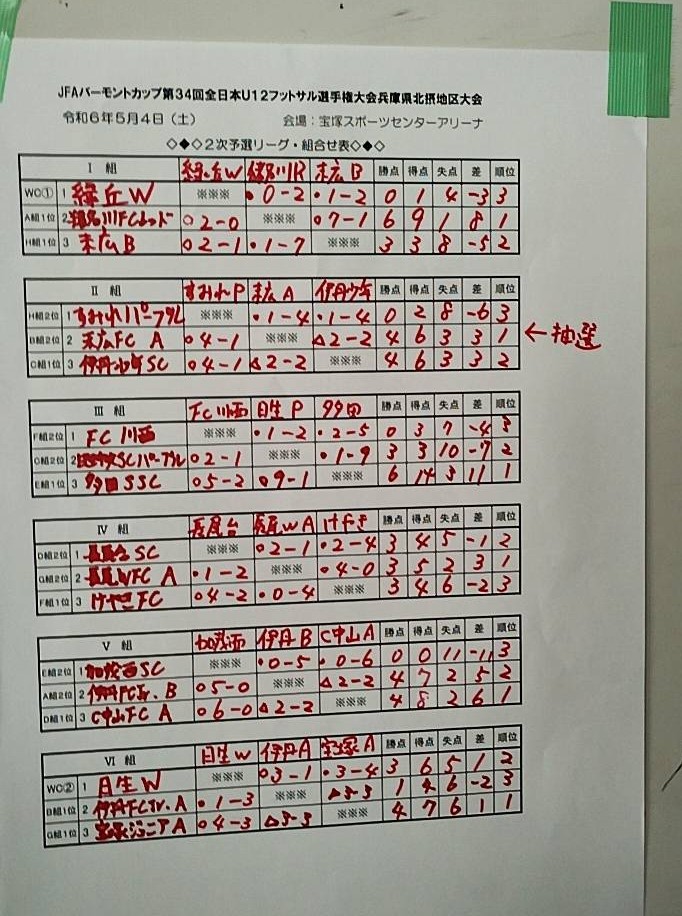 JFAバーモントカップ第34回全日本U12フットサル選手権大会兵庫県北摂地区大会
令和6年5月4日(土) 会場:宝塚スポーツセンターアリーナ
◇◆◇2次予選リーグ・組合せ表◇◆◇
Ⅰ 組 緑丘W 猪名川R 末広B 勝点 得点 失点 差 順位
WC① 1 緑丘W ※※※ ・0-2 ・1-2 0 1 4 -3 3
A組1位 2 猪名川FCレッド ○2-0 ※※※ ○7-1 6 9 1 8 1
H組1位 3 末広B ○2-1 ・1-7 ※※※ 3 3 8 -5 2
Ⅱ 組 すみれP 末広A 伊丹少年 勝点 得点 失点 差 順位
H組2位 1 すみれパープル ※※※ ・1-4 ・1-4 0 2 8 -6 3
B組2位 2 末広FC A ○4-1 ※※※ △2-2 4 6 3 3 1 ←抽選
C組1位 3 伊丹少年SC ○4-1 △2-2 ※※※ 4 6 3 3 2
Ⅲ 組 FC川西 日生P 多田 勝点 得点 失点 差 順位
F組2位 1 FC川西 ※※※ ・1-2 ・2-5 0 3 7 -4 3
C組2位 2 SCパープル ○2-1 ※※※ ・1-9 3 3 10 -7 2
E組1位 3 多田SSC ○5-2 ○9-1 ※※※ 6 14 3 11 1
Ⅳ 組 長尾台 長尾WA けやき 勝点 得点 失点 差 順位
D組2位 1 長尾台SC ※※※ ○2-1 ・2-4 3 4 5 -1 2
G組2位 2 長尾WFC A ・1-2 ※※※ ○4-0 3 5 2 3 1
F組1位 3 けやきFC ○4-2 ・0-4 ※※※ 3 4 6 -2 3
Ⅴ 組 加茂西 伊丹B C中山A 勝点 得点 失点 差 順位
E組2位 1 加茂西SC ※※※ ・0-5 ・0-6 0 0 11 -11 3
A組2位 2 伊丹FCJr.B ○5-0 ※※※ △2-2 4 7 2 5 2
D組1位 3 C中山FC A ○6-0 △2-2 ※※※ 4 8 2 6 1
Ⅵ 組 日生W 伊丹A 宝塚A 勝点 得点 失点 差 順位
WC② 1 日生W ※※※ ○3-1 ・3-4 3 6 5 1 2
B組1位 2 伊丹FCJr.A ・1-3 ※※※ △3-3 1 4 6 -2 3
G組1位 3 宝塚ジュニアA ○4-3 △3-3 ※※※ 4 7 6 1 1